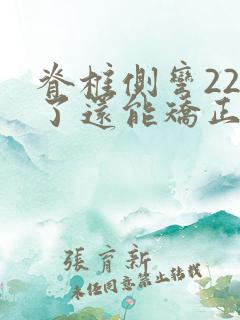 脊椎側彎22
了還能矯正
張育新
未经同意禁止转载